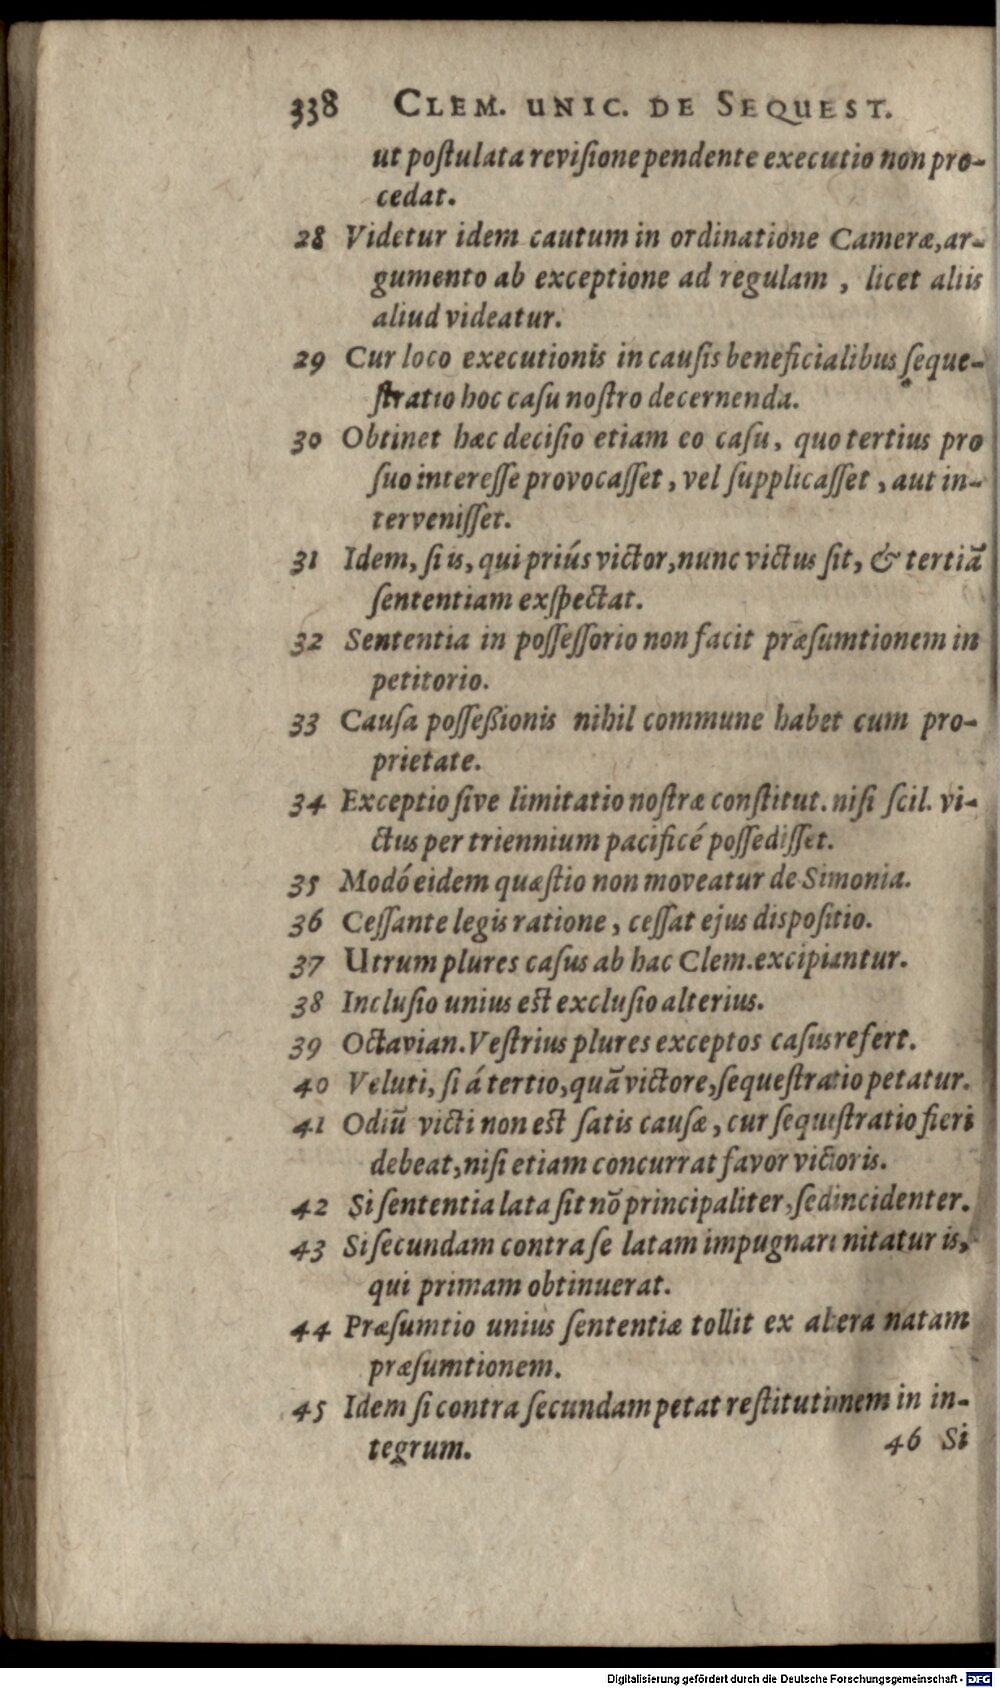 338 CLEM. UNIC. DE SEQUEST.
ut poſtulata reviſione pendente executio non pro-
cedat.
28 Videtur idem cautum in ordinatione Cameræ, ar-
gumento ab exceptione ad regulam , licet aliis
aliud videatur.
29 Cur loco executionis in cauſis beneficialibus ſeque-
ſtratio hoc caſu noſtro decernenda.
30 Obtinet hæc deciſio etiam eo caſu, quo tertius pro
ſuo intereſſe provocaſſet, vel ſupplicaſſet, aut in-
terveniſſet.
31 Idem, ſi is, qui priús victor, nunc victus ſit, & tertiã
ſententiam exſpectat.
32 Sententia in poſſeſſorio non facit præſumtionem in
petitorio.
33 Cauſa poſſeßionis nihil commune habet cum pro-
prietate.
34 Exceptio ſive limitatio noſtræ conſtitut. niſi ſcil. vi-
ctus per triennium pacificé poſſediſſet.
35 Modó eidem quæſtio non moveatur de Simonia.
36 Ceſſante legis ratione, ceſſat ejus diſpoſitio.
37 Utrum plures caſus ab hac Clem. excipiantur.
38 Incluſio unius eſt excluſio alterius.
39 Octavian. Veſtrius plures exceptos caſus refert.
40 Veluti, ſi á tertio, quã victore, ſequeſtratio petatur.
41 Odiũ victi non eſt ſatis cauſæ, cur ſequeſtratio fieri
debeat, niſi etiam concurrat favor victoris.
42 Si ſententia lata ſit nõ principaliter, ſed incidenter.
43 Si ſecundam contra ſe latam impugnari nitatur is,
qui primam obtinuerat.
44 Præſumtio unius ſententiæ tollit ex altera natam
præſumtionem.
45 Idem ſi contra ſecundam petat reſtitutionem in in-
tegrum.
46 Si
Digitalisierung gefördert durch die Deutsche Forschungsgemeinschaft - DFG